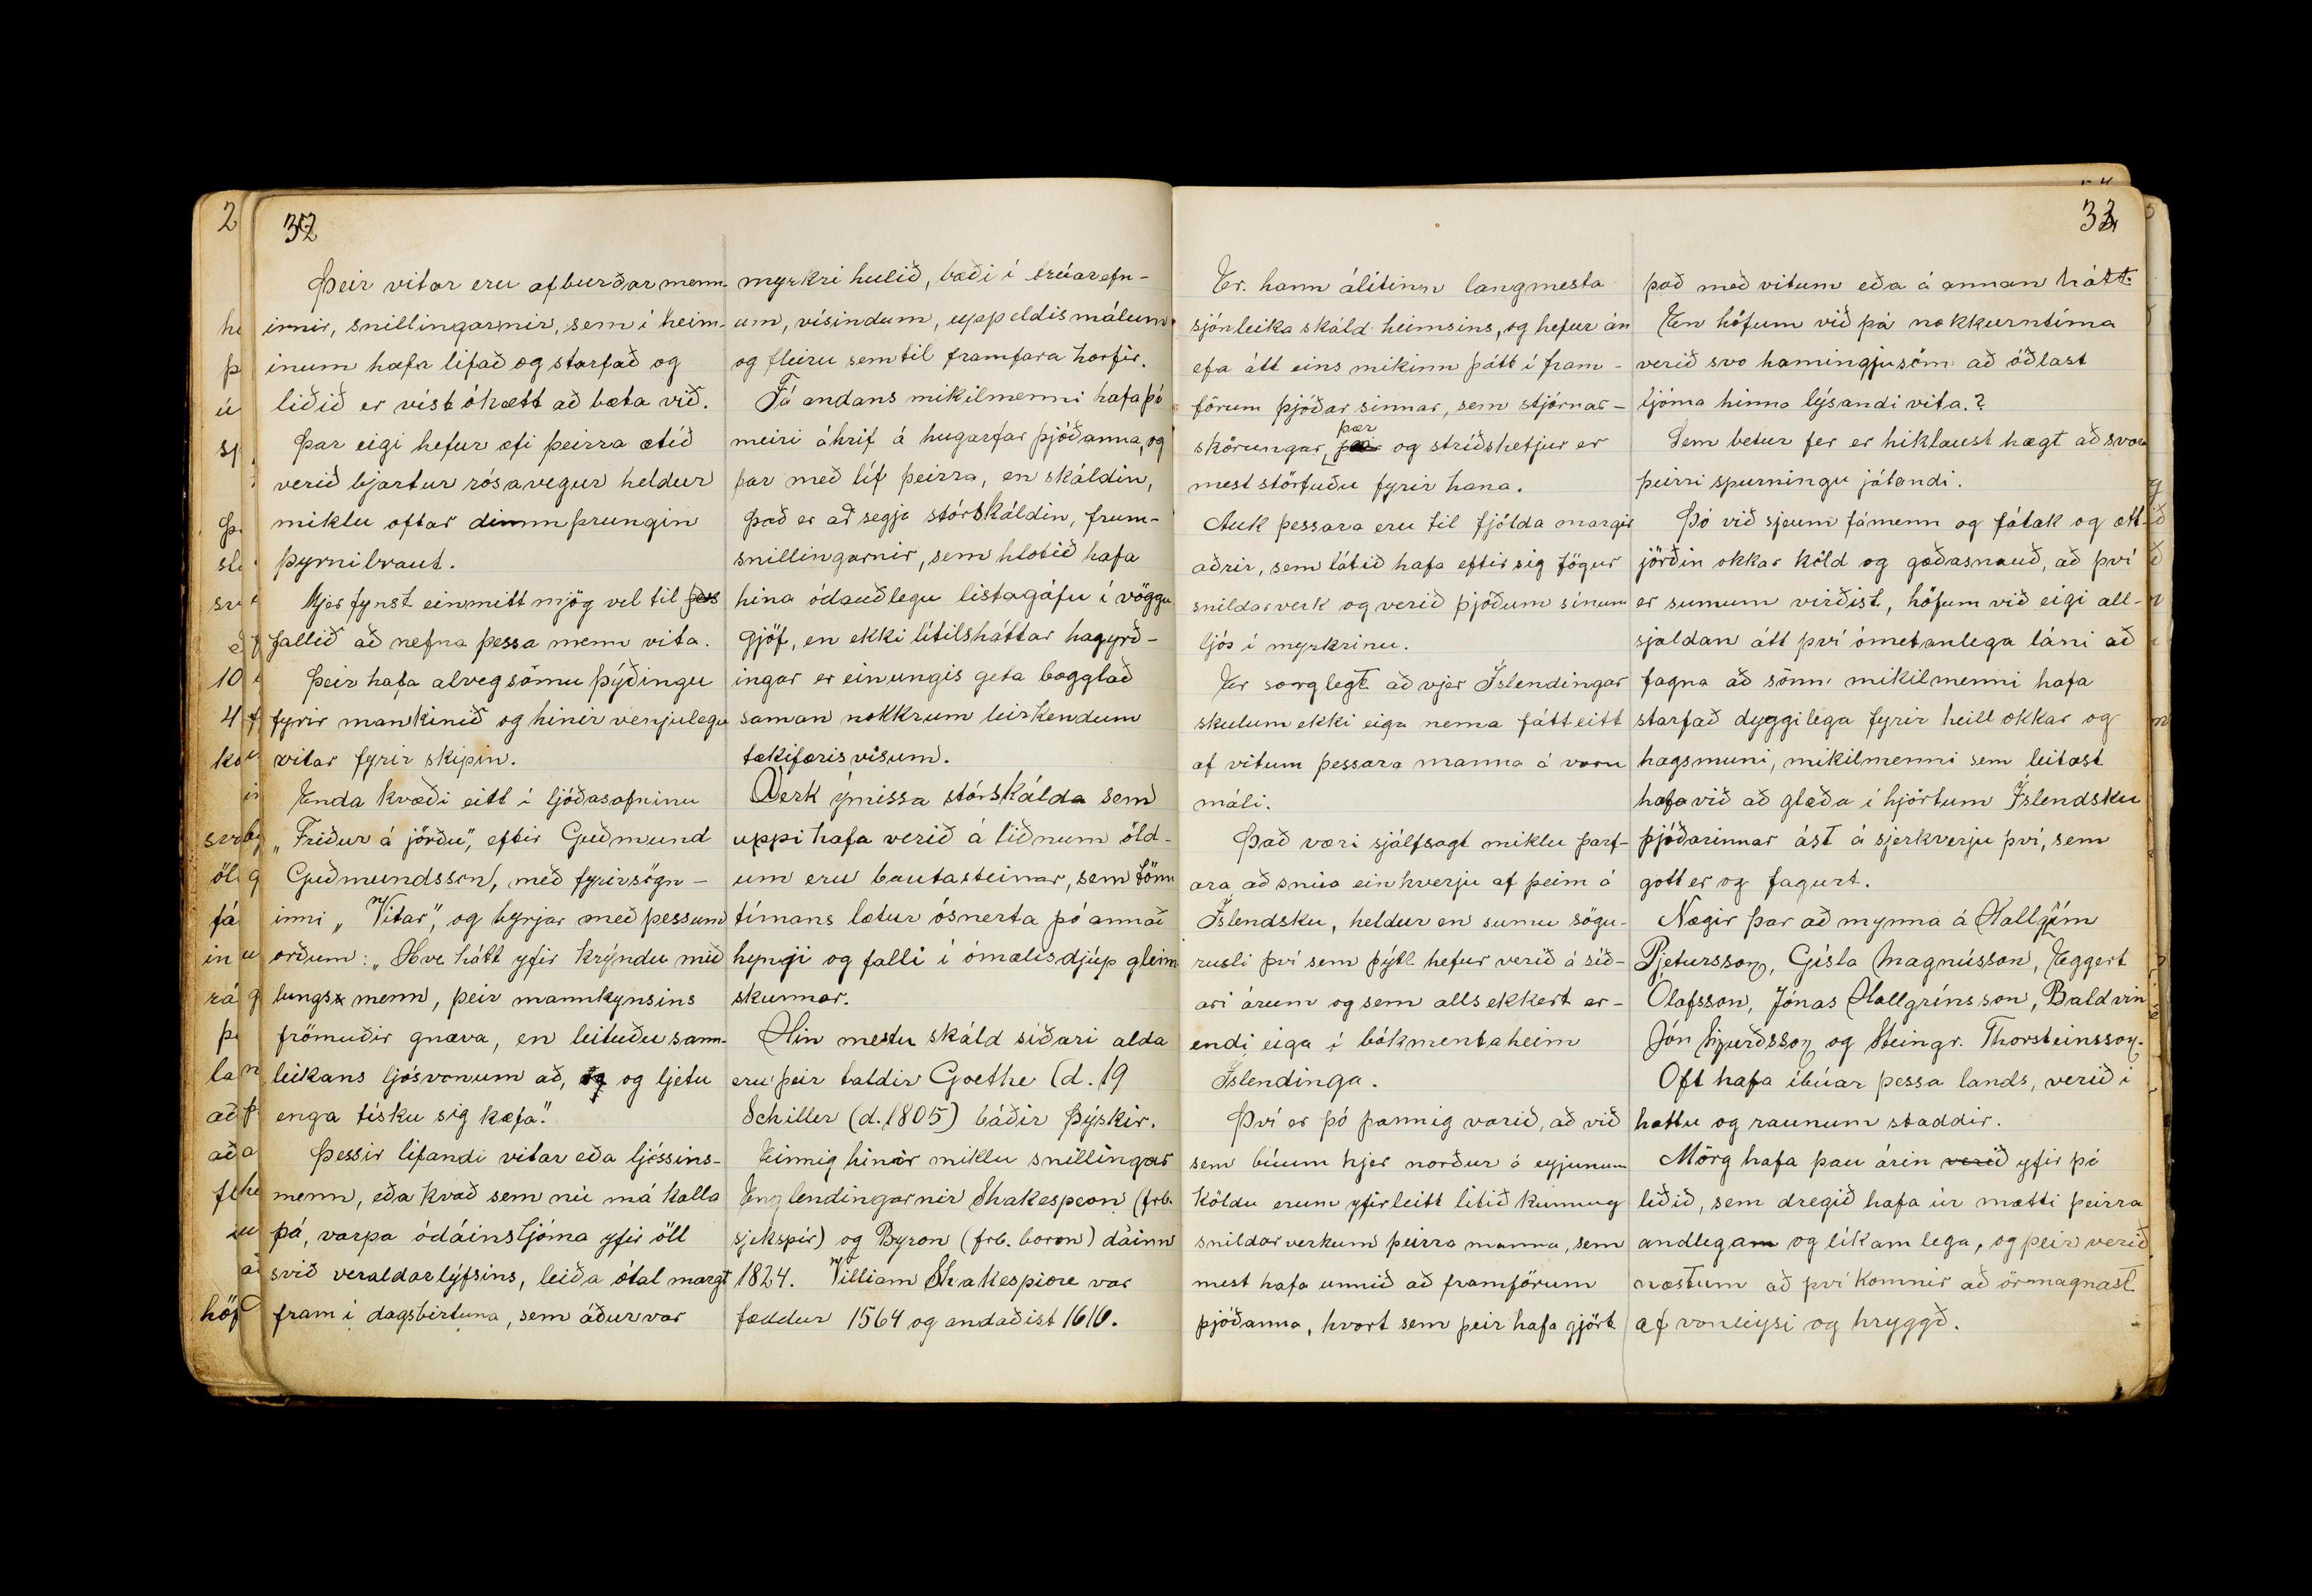 32
Þeir vitar eru afburðarmenn-
irnir, snillingarnir, sem í heim-
inum hafa lifað og starfað og
liðið er víst óhætt að bæta við.
Þar eigi hefur æfi þeirra ætíð
verið bjartur rósavegur heldur
miklu oftar dimm þrungin
þyrnibraut.
Mjer fynst einmitt mjög vel til þess
fallið að nefna þessa menn vita.
Þeir hafa alveg sömu þýðingu
fyrir mankinið og hinir venjulegu
vitar fyrir skipin.
Enda kvæði eitt í ljóðasafninu
„Friður á jörðu", eftir Guðmund
Guðmundsson, með fyrirsögn-
inni „Vitar", og byrjar með þessum
orðum: „Hve hátt yfir krýndu mið
lungs menn, þeir mannkynsins
frömuðir gnæva, en leituðu sann-
leikans ljósvonum að, og og ljetu
enga tísku sig kæfa."
Þessir lifandi vitar eða ljóssins-
menn, eða hvað sem nú má kalla
þá, varpa ódáinsljóma yfir öll
svið veraldarlýfsins, leiða ótal margt
fram í dagsbirtuna, sem áður var
myrkri hulið, bæði í trúarefn-
um, vísindum, uppeldismálum
og fleiru sem til framfara horfir.
Fá andans mikilmenni hafa þó
meiri áhrif á hugarfar þjóðanna, og
þar með líf þeirra, en skáldin,
Það er að segja stórskáldin, frum-
snillingarnir, sem hlotið hafa
hina ódauðlegu listagáfu í vöggu
gjöf, en ekki lítilsháttar hagyrð-
ingar er einungis geta bögglað
saman nokkrum leirkendum
tækifærisvísum.
Verk ýmissa stórskálda sem
uppi hafa verið á liðnum öld-
um eru bautasteinar, sem tönn
tímans lætur ósnerta þó annað
hyngi og falli í ómælisdjúp gleim
skunnar.
Hin mestu skáld síðari alda
eru þeir taldir Goethe (d. 19
Schiller (d. 1805) báðir Þýskir.
Einnig hinir miklu snillingar
Englendingarnir Shakespear (frb.
sjekspír) og Byron (frb. boron) dáinn
1824. William Shakespiore var
fæddur 1564 og andaðist 1616.
33
Er hann álitinn langmesta
sjónleika skáld heimsins, og hefur án
efa átt eins mikinn þátt í fram-
förum þjóðar sinnar, sem stjórnar-
skörungar, þær og stríðshetjur er
mest störfuðu fyrir hana.
Auk þessara eru til fjölda margir
aðrir, sem látið hafa eftir sig fögur
snildarverk og verið þjóðum sínum
ljós í myrkrinu.
Er sorglegt að vjer Íslendingar
skulum ekki eiga nema fátt eitt
af vitum þessara manna á voru
máli.
Það væri sjálfsagt miklu þarf-
ara að snúa einhverju af þeim á
Íslendsku, heldur en sumu sögu-
rusli því sem þýtt hefur verið á síð-
ari árum og sem alls ekkert er-
endi eiga í bókmentaheim
Íslendinga.
Því er þó þannig varið, að við
sem búum hjer norður á eyjunum
köldu erum yfirleitt lítið kunnug
snildarverkum þeirra manna, sem
mest hafa unnið að framförum
þjóðanna, hvort sem þeir hafa gjört
það með vitum eða á annan hátt.
En höfum við þá nokkurntíma
verið svo hamingjusöm að öðlast
ljóma hinna lýsandi vita.?
Sem betur fer er hiklaust hægt að svara
þeirri spurningu játandi.
Þó við sjeum fámenn og fátæk og ætt-
jörðin okkar köld og gæðasnauð, að því
er sumum virðist, höfum við eigi all-
sjaldan átt því ómetanlega láni að
fagna að sönn mikilmenni hafa
starfað dyggilega fyrir heill okkar og
hagsmuni, mikilmenni sem leitast
hafa við að glæða í hjörtum Íslendsku
þjóðarinnar ást á sjerhverju því, sem
gott er og fagurt.
Nægir þar að mynna á Hallgrím
Pjetursson, Gísla Magnússon, Eggert
Olafsson, Jónas Hallgrínsson, Baldvin
Jón Sigurðsson og Steingr. Thorsteinsson.
Oft hafa íbúar þessa lands, verið í
hættu og raunum staddir.
Mörg hafa þau árin verið yfir þá
liðið, sem dregið hafa úr mætti þeirra
andlegam og líkamlega, og þeir verið
næstum að því komnir að örmagnast
af vonleysi og hryggð.